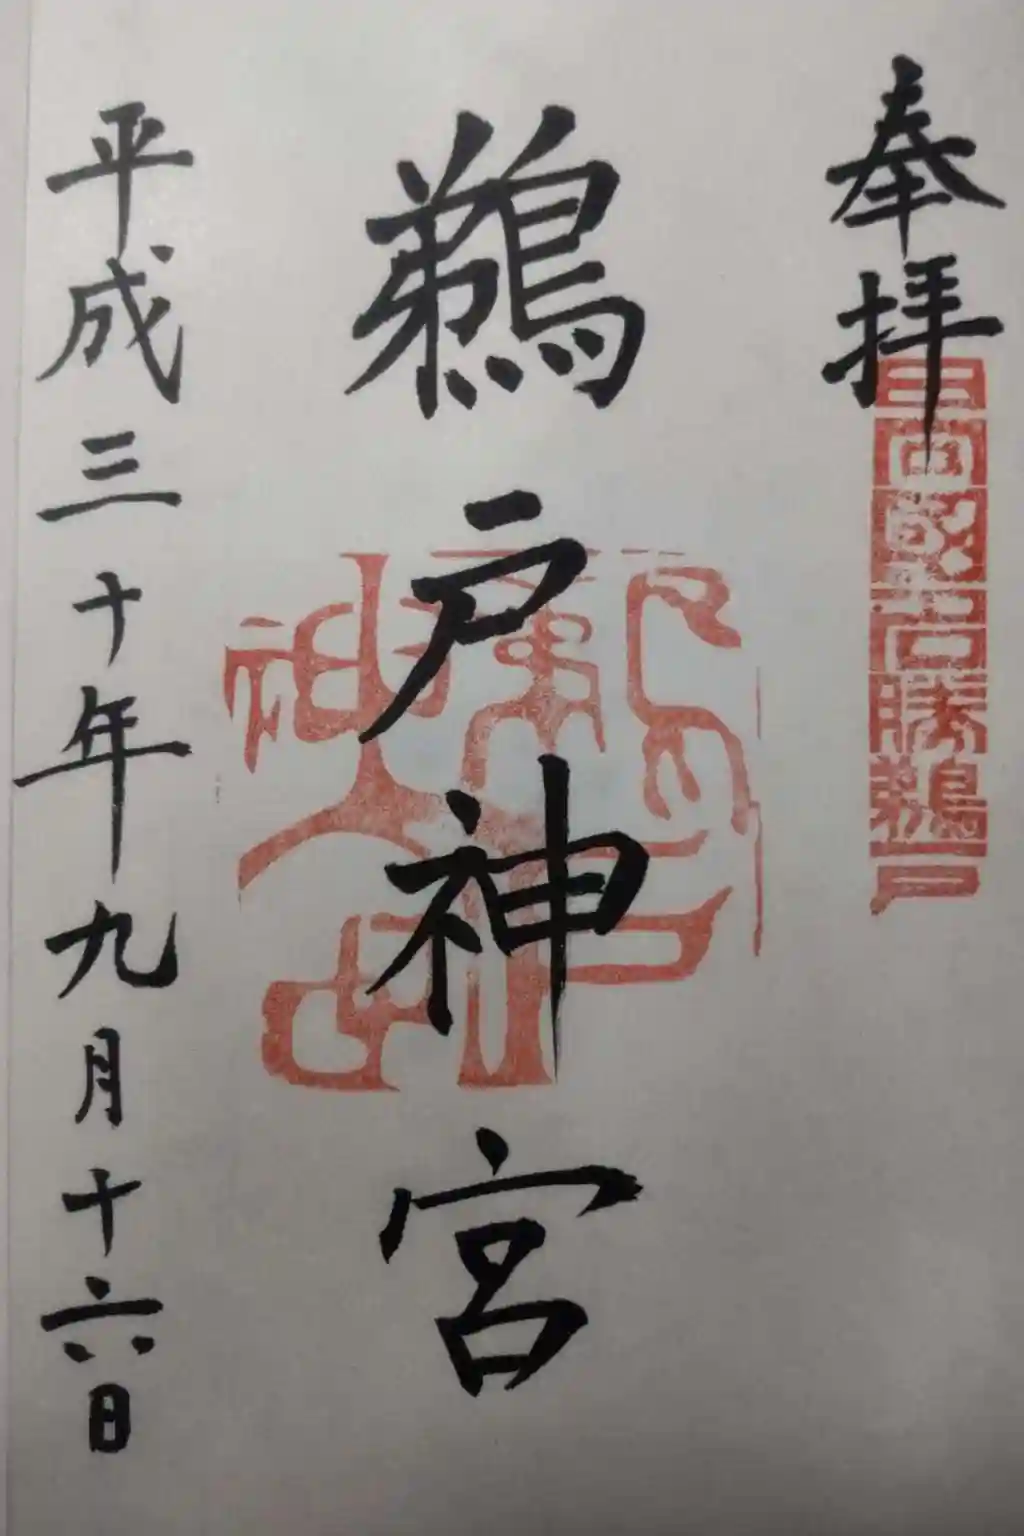 奉拝
三国名勝鵜戸
鵜戸神宮
鵜戸神宮
平成三十年九月十六日